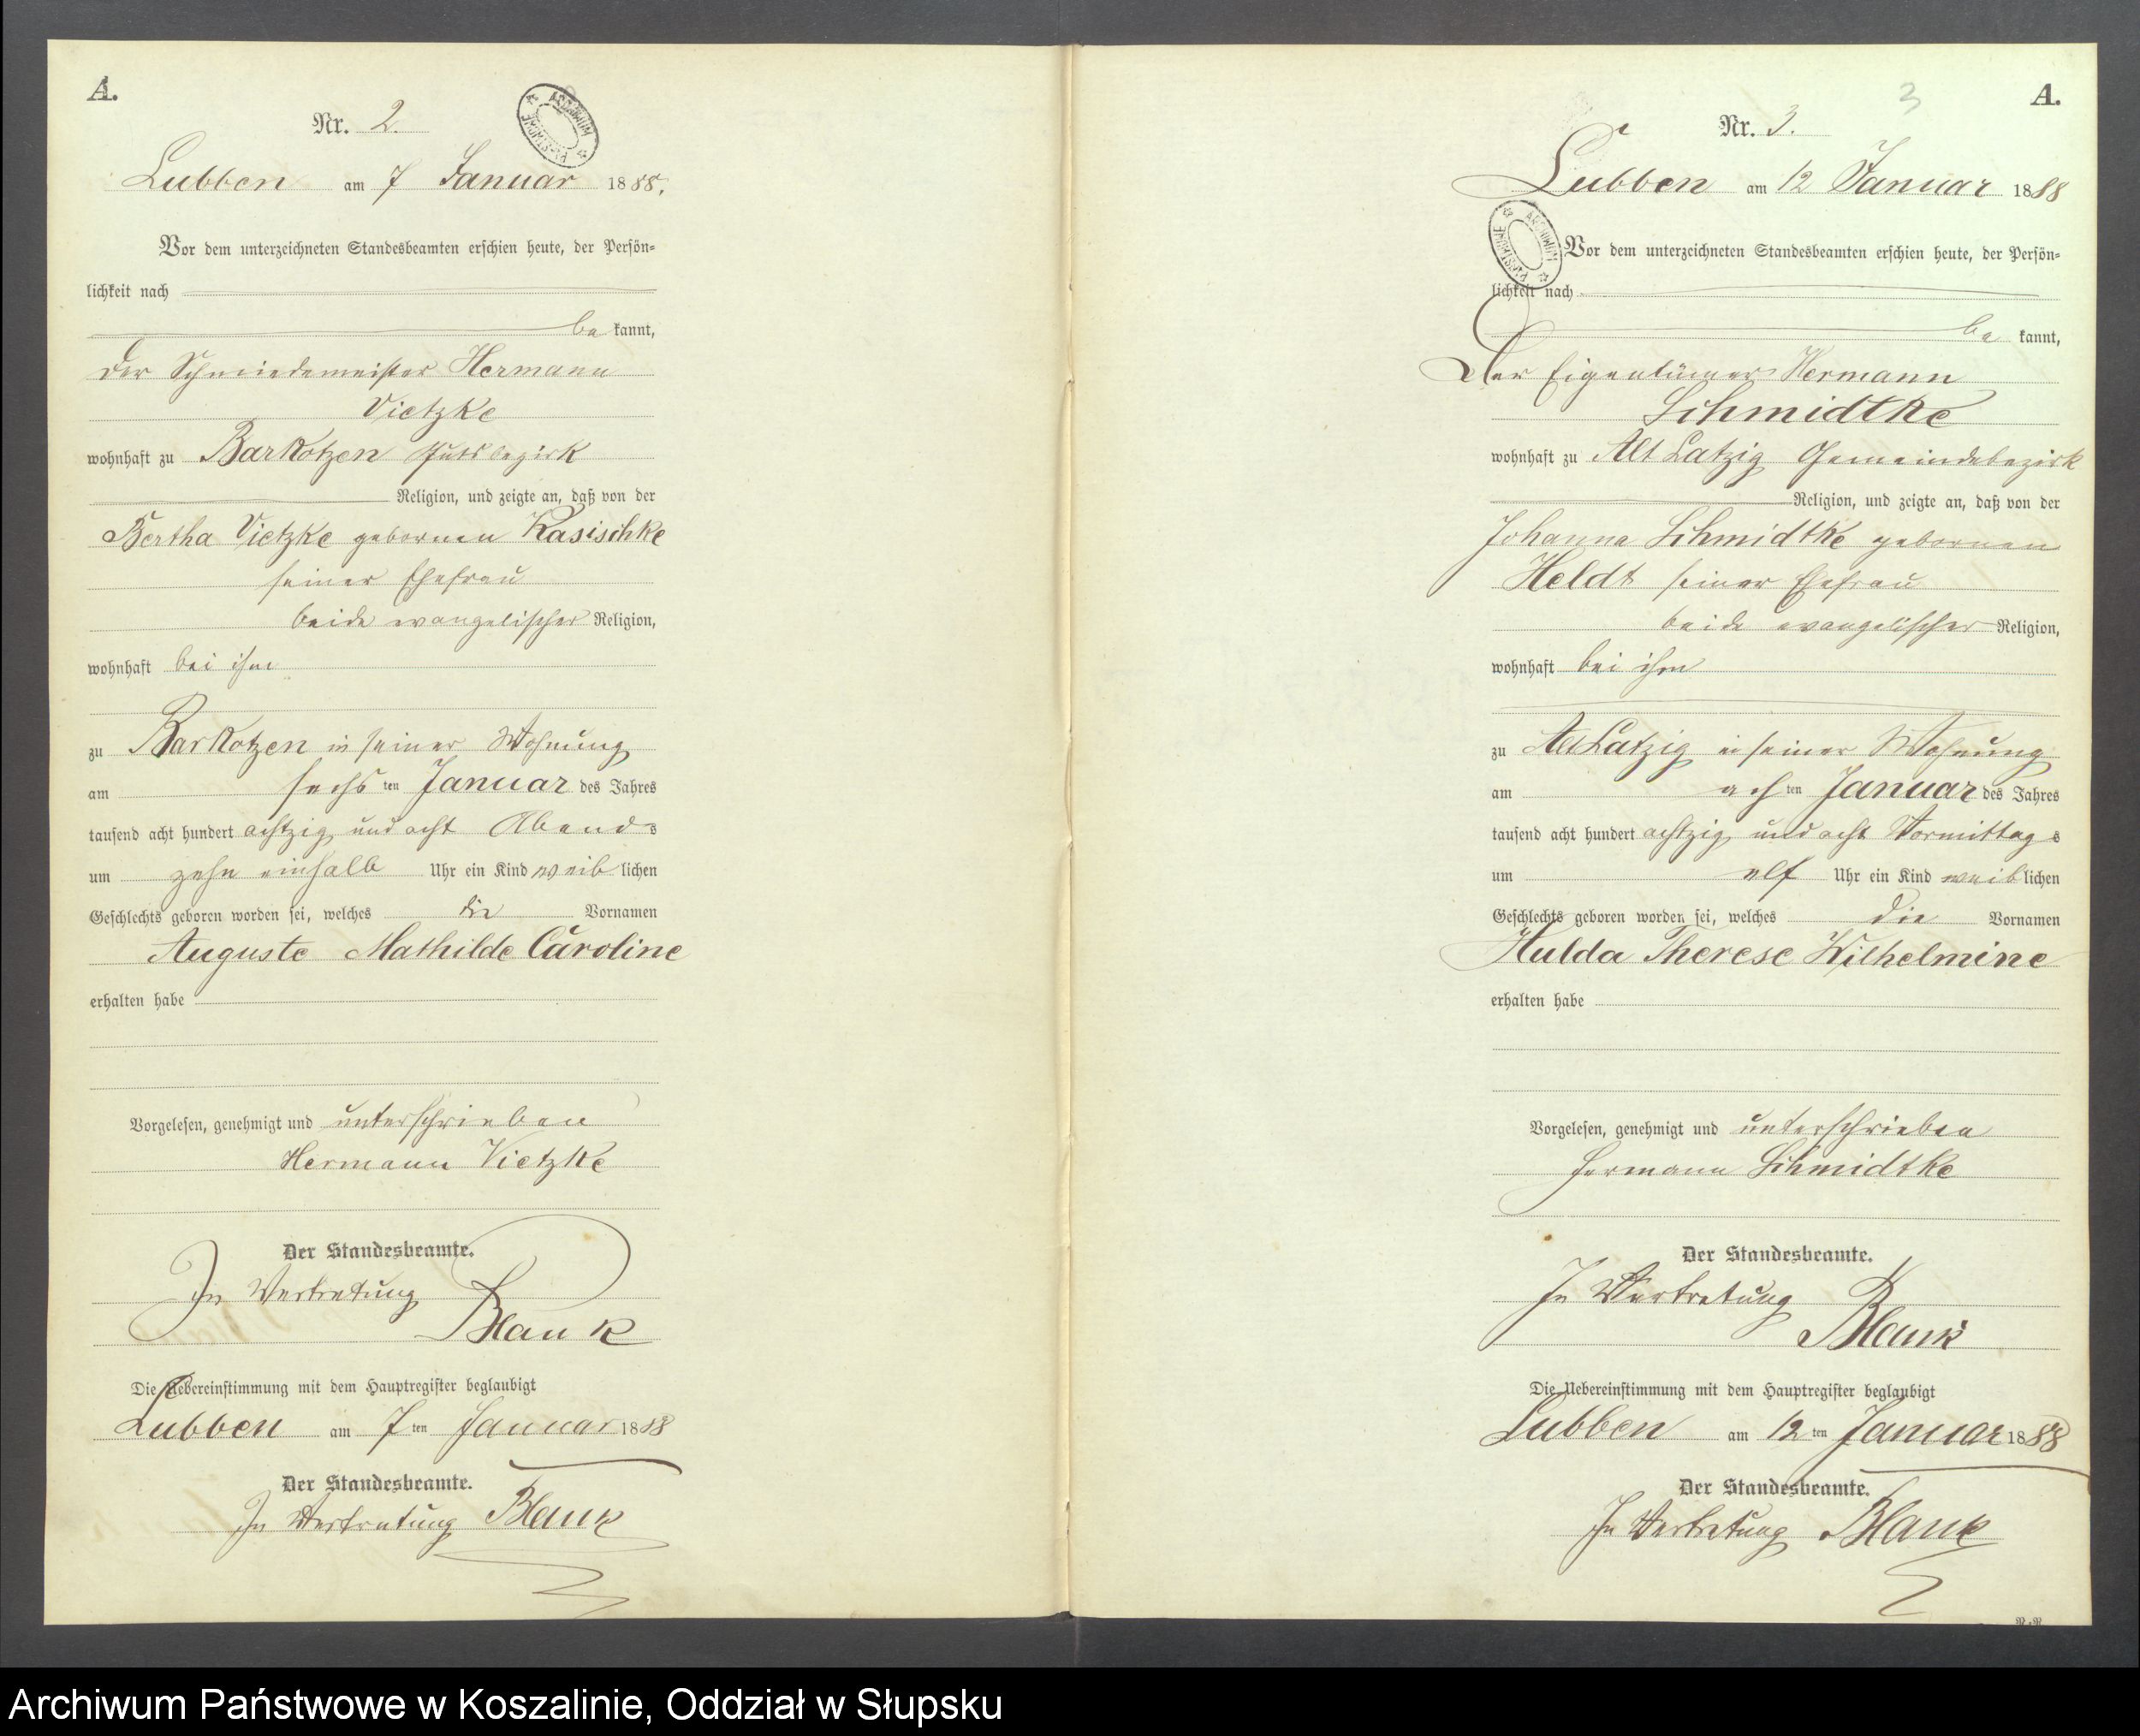 A.
Nr. 2.
ARCHIWUM PAŃSTWOWE
Lubben am 7 Januar 1888.
Vor dem unterzeichneten Standesbeamten erschien heute, der Persön-
lichkeit nach
be kannt,
der Schmiedemeister Hermann
Vietzke
wohnhaft zu Barkotzen Gutsbezirk
Religion, und zeigte an, daß von der
Bertha Vietzke gebornen Kasischke
seiner Ehefrau
beide evangelischer Religion,
wohnhaft bei ihm
zu Barkotzen in seiner Wohnung
am sechs ten Januar des Jahres
tausend acht hundert achtzig und acht Abends
um zehn einhalb Uhr ein Kind weib lichen
Geschlechts geboren worden sei, welches die Vornamen
Auguste Mathilde Caroline
erhalten habe
Vorgelesen, genehmigt und unterschrieben
Hermann Vietzke
Der Standesbeamte.
In Vertretung
Blank
Die Uebereinstimmung mit dem Hauptregister beglaubigt
Lubben am 7 ten Januar 1888
Der Standesbeamte.
In Vertretung Blank
3
A.
Nr. 3.
Lubben am 12 Januar 1888
ARCHIWUM PAŃSTWOWE
Vor dem unterzeichneten Standesbeamten erschien heute, der Persön-
lichkeit nach
be kannt,
Der Eigentümer Hermann
Schmidtke
wohnhaft zu Alt Latzig Gemeindebezirk
Religion, und zeigte an, daß von der
Johanna Schmidtke gebornen
Heldt seiner Ehefrau
beide evangelischer Religion,
wohnhaft bei ihm
zu Alt Latzig in seiner Wohnung
am ach ten Januar des Jahres
tausend acht hundert achtzig und acht Vormittags
um elf Uhr ein Kind weib lichen
Geschlechts geboren worden sei, welches die Vornamen
Hulda Therese Wilhelmine
erhalten habe
Vorgelesen, genehmigt und unterschrieben
Hermann Schmidtke
Der Standesbeamte.
In Vertretung
Blank
Die Uebereinstimmung mit dem Hauptregister beglaubigt
Lubben am 12 ten Januar 1888
Der Standesbeamte.
In Vertretung Blank
Archiwum Państwowe w Koszalinie, Oddział w Słupsku